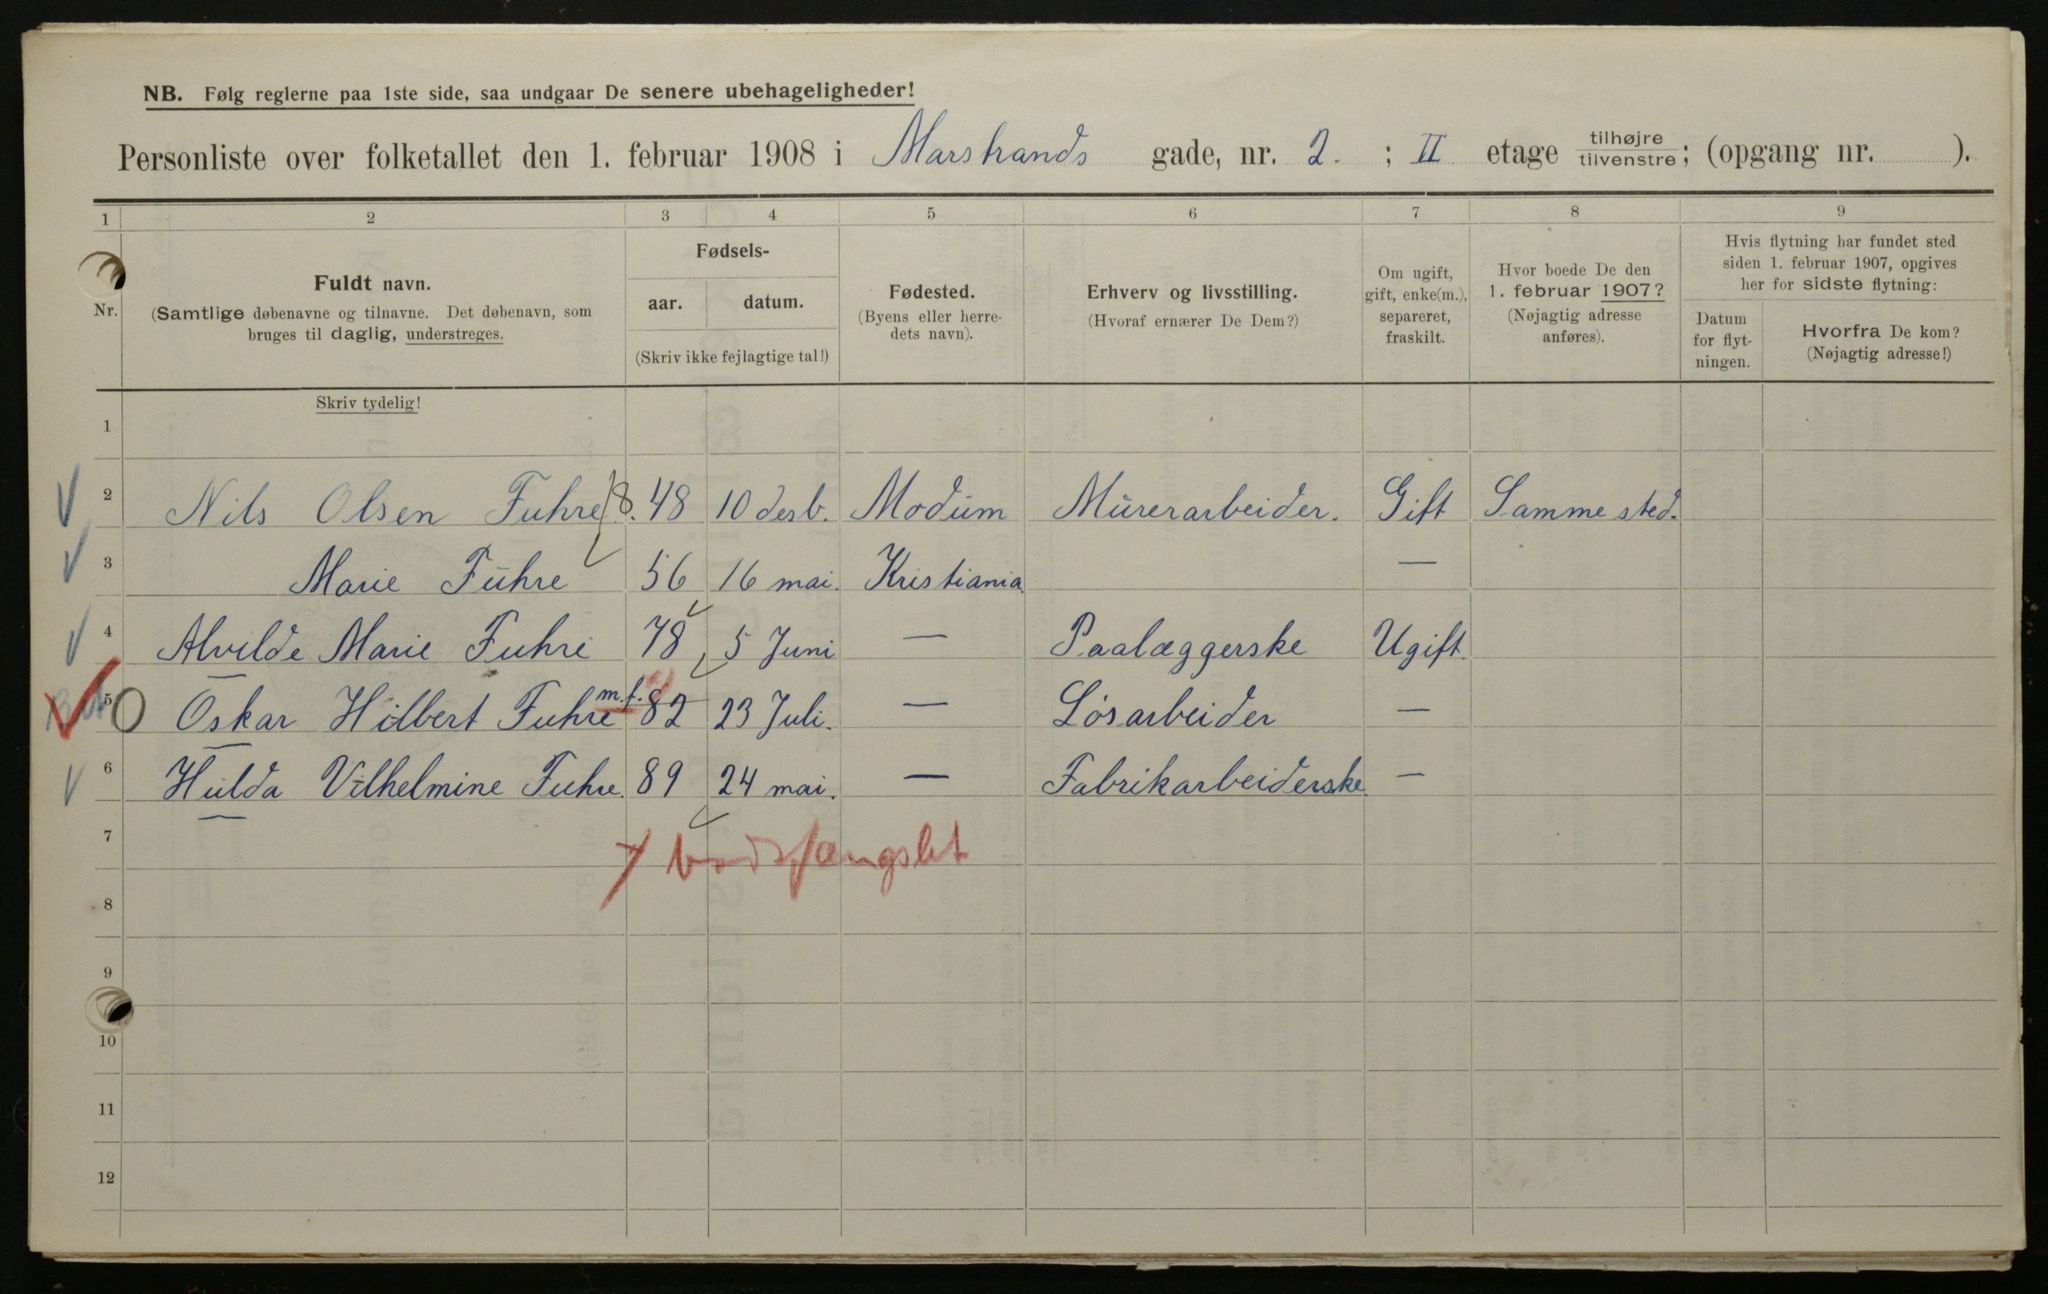 NB. Følg reglerne paa 1ste side, saa undgaar De senere ubehageligheder!
Personliste over folketallet den 1. februar 1908 i Marstrands gade, nr. 2. ; II etage tilhøjre tilvenstre; (opgang nr. ).
1 2 3 4 5 6 7 8 9
Nr.
Fuldt navn.
(Samtlige døbenavne og tilnavne. Det døbenavn, som
bruges til daglig, understreges.
Fødsels-
aar. datum.
(Skriv ikke fejlagtige tal!)
Fødested.
(Byens eller herre-
dets navn).
Erhverv og livsstilling.
(Hvoraf ernærer De Dem?)
Om ugift,
gift, enke(m.),
separeret,
fraskilt.
Hvor boede De den
1. februar 1907?
(Nøjagtig adresse
anføres).
Hvis flytning har fundet sted
siden 1. februar 1907, opgives
her for sidste flytning:
Datum
for flyt-
ningen.
Hvorfra De kom?
(Nøjagtig adresse!)
Skriv tydelig!
1
2 Nils Olsen Fuhre 48 10 desb. Modum Murerarbeider. Gift Samme sted.
3 Marie Fuhre 56 16 mai. Kristiania. —
4 Alvilde Marie Fuhre 78 5 Juni — Paalæggerske Ugift.
5 Oskar Hilbert Fuhre m.f. 82 23 Juli. — Løsarbeider —
6 Hulda Vilhelmine Fuhre. 89 24 mai. — Fabrikarbeiderske. —
7 bodsfængslet
8
9
10
11
12